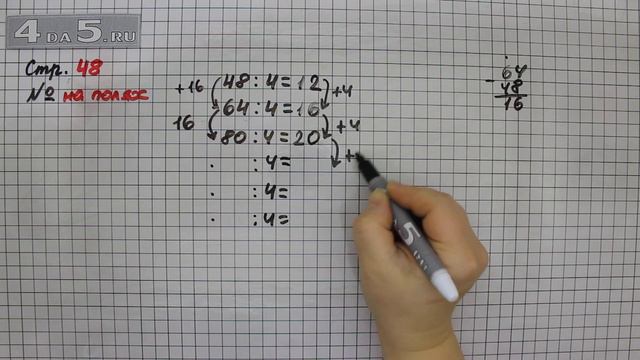 4 DA 5.RU
Стр. 48
№ на полях
+16 48 : 4 = 12 +4
16 64 : 4 = 16 +4
80 : 4 = 20 +
. : 4 =
. : 4 =
. : 4 =
64
- 48
16
5